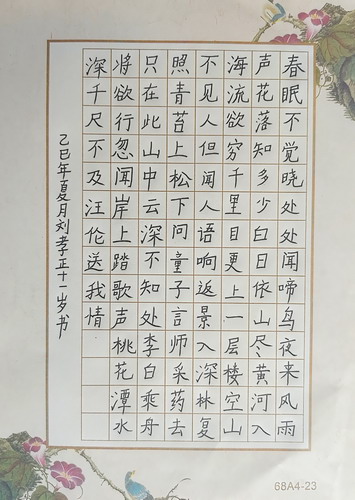 春眠不觉晓处处闻啼鸟夜来风雨
声花落知多少白日依山尽黄河入
海流欲穷千里目更上一层楼空山
不见人但闻人语响返景入深林复
照青苔上松下问童子言师采药去
只在此山中云深不知处李白乘舟
将欲行忽闻岸上踏歌声桃花潭水
深千尺不及汪伦送我情
乙巳年夏月刘孝正十一岁书
68A4-23